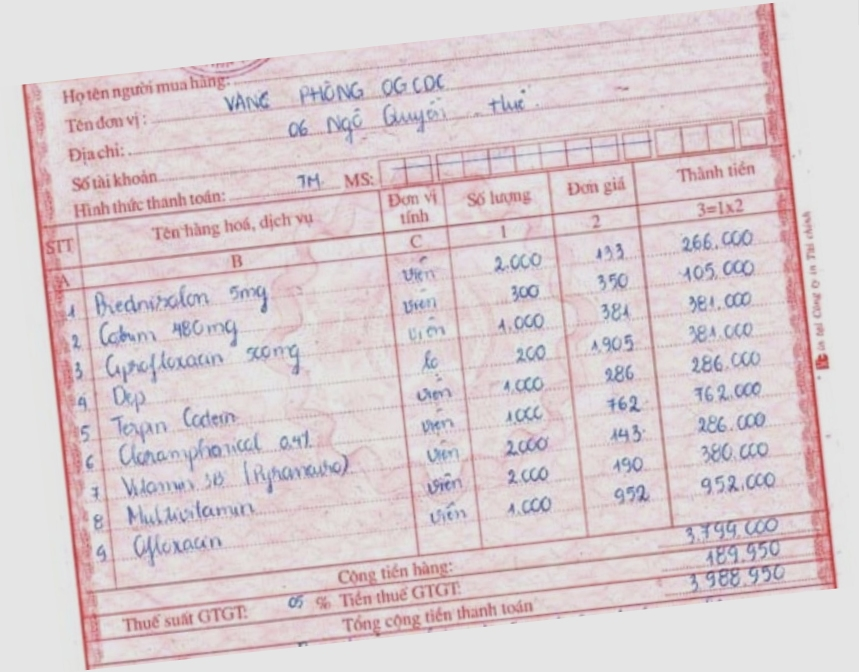 Họ tên người mua hàng:
Tên đơn vị: VĂNG PHÒNG OGCDC
Địa chỉ: 06 Ngô Quyền Huế
Số tài khoản
Hình thức thanh toán: TM. MS:
STT Tên hàng hoá, dịch vụ Đơn vị tính Số lượng Đơn giá Thành tiền
A B C 1 2 3=1x2
1 Prednisolon 5mg viên 2.000 133 266.000
2 Cotrim 480mg viên 300 350 105.000
3 Ciprofloxacin 500mg viên 1.000 381 381.000
4 Dep lọ 200 1.905 381.000
5 Terpin Codein viên 1.000 286 286.000
6 Cloramphenicol 0.4% viên 1000 762 762.000
7 Vitamin 3B viên 2.000 143 286.000
8 Multivitamin viên 2000 190 380.000
9 Ofloxacin viên 1.000 952 952.000
Cộng tiền hàng: 3.799.000
Thuế suất GTGT: 05 % Tiền thuế GTGT: 189.950
Tổng cộng tiền thanh toán 3.988.950
in tại Công ty in Tài chính